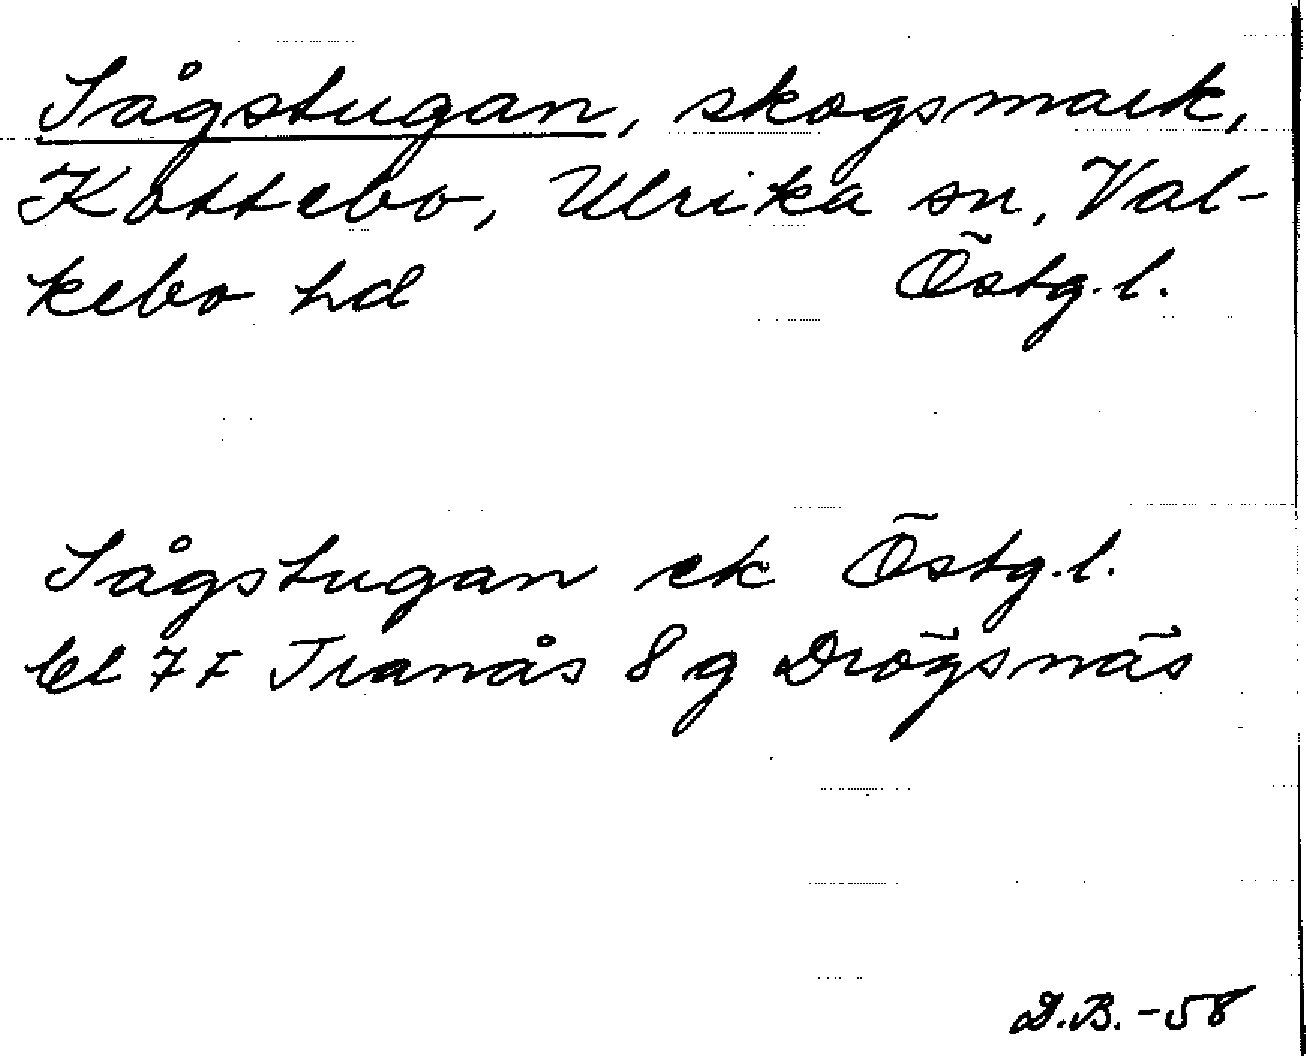 Sågstugan, skogsmark,
Kottebo, Ulrika sn, Val-
kebo hd Östg.l.
Sågstugan ek Östg.l.
bl 7F Tranås 8 g Drögsnäs
D.B. -58